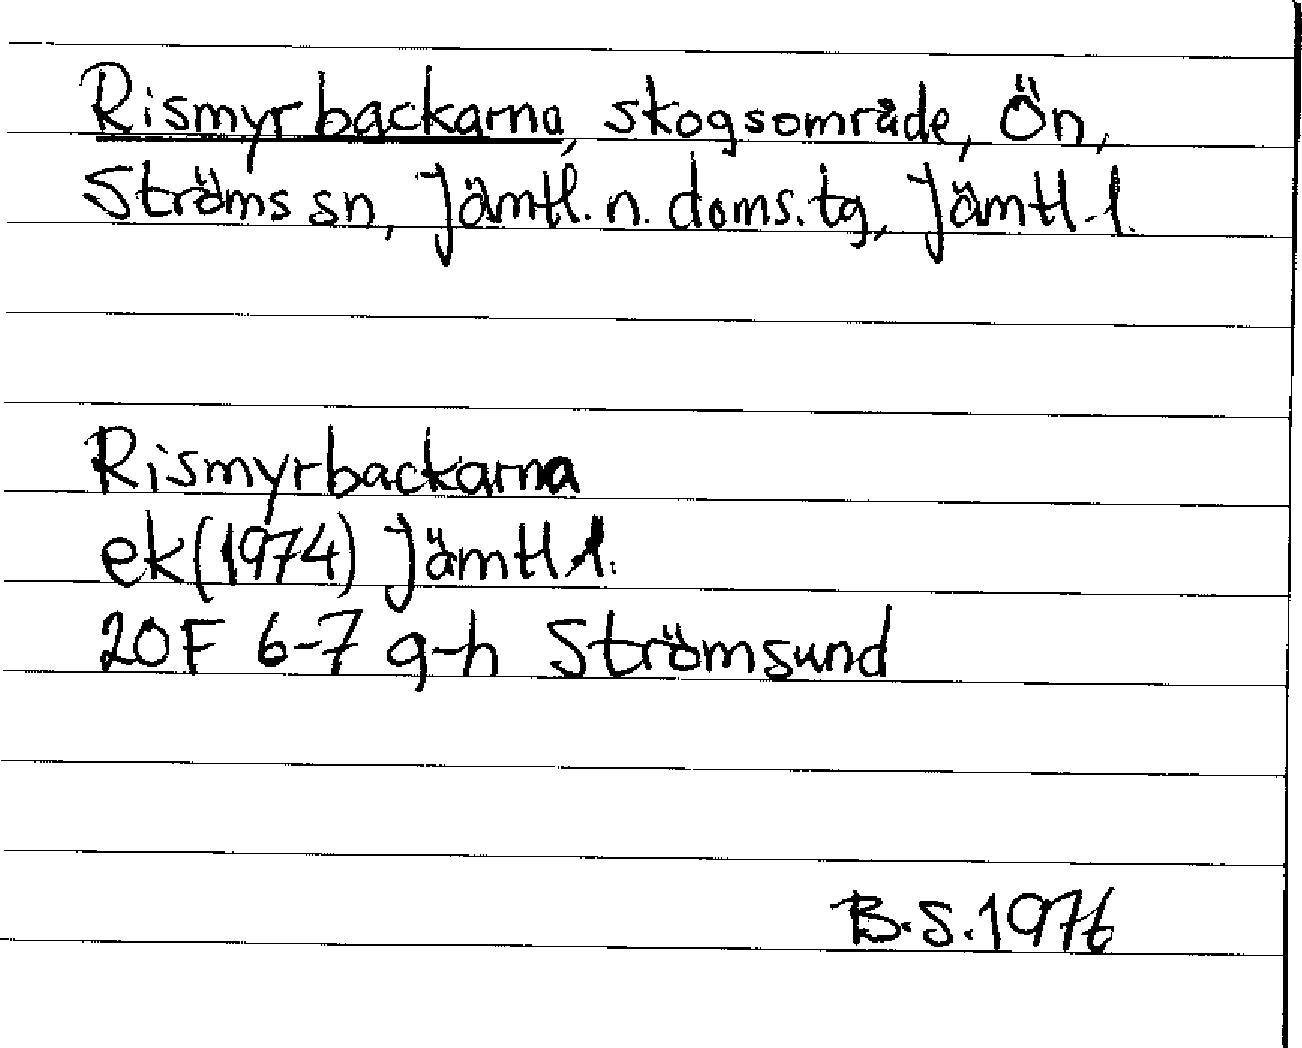 Rismyrbackarna, skogsområde, Ön,
Ströms sn, Jämtl. n. doms. tg, Jämtl. l.
Rismyrbackarna
ek (1974) Jämtl l.
20F 6-7 g-h Strömsund
B.S. 1976